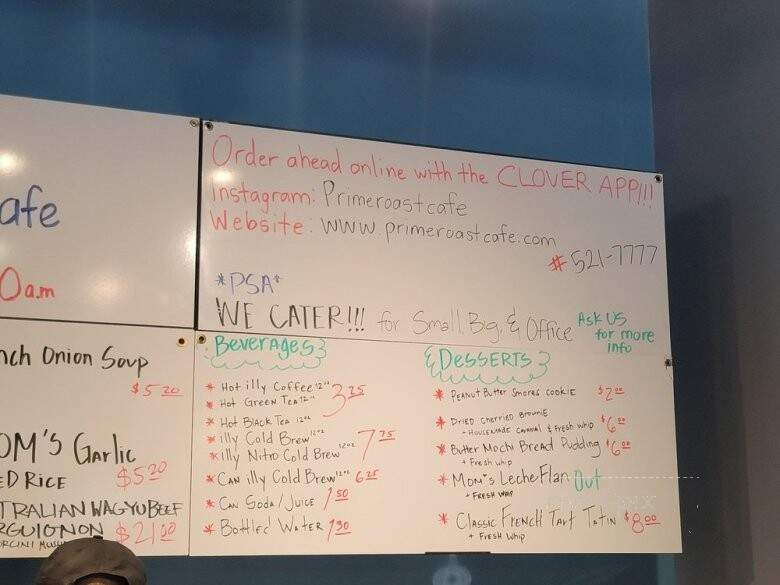 afe
0am
nch Onion Soup
$5.20
OM'S Garlic
ED RICE $5.20
TRALIAN WAGYU BEEF
RGUIGNON $21.20
Order ahead online with the CLOVER APP!!!
Instagram: Primeroastcafe
Website: www.primeroastcafe.com
# 521-7777
*PSA*
WE CATER!!! for Small, Big, & Office
Ask US
for more
info
Beverages
* Hot illy Coffee 12oz
* Hot Green Tea 12oz
3.25
* Hot Black Tea 12oz
* illy Cold Brew 12oz
* illy Nitro Cold Brew 12oz
7.75
* Can illy Cold Brew 12oz 6.25
* Can Soda/Juice 1.50
* Bottled Water 1.50
DESSERTS
* PEANUT BUTTER SMORES COOKIE $2.00
* DRIED CHERRIED BROWNIE
- HOUSEMADE CARAMEL & FRESH WHIP $6.00
* Butter Mochi Bread Pudding $6.00
+ Fresh whip
* Mom's Leche Flan Out
+ FRESH WHIP
* Classic French Tart Tatin $8.00
+ FRESH WHIP